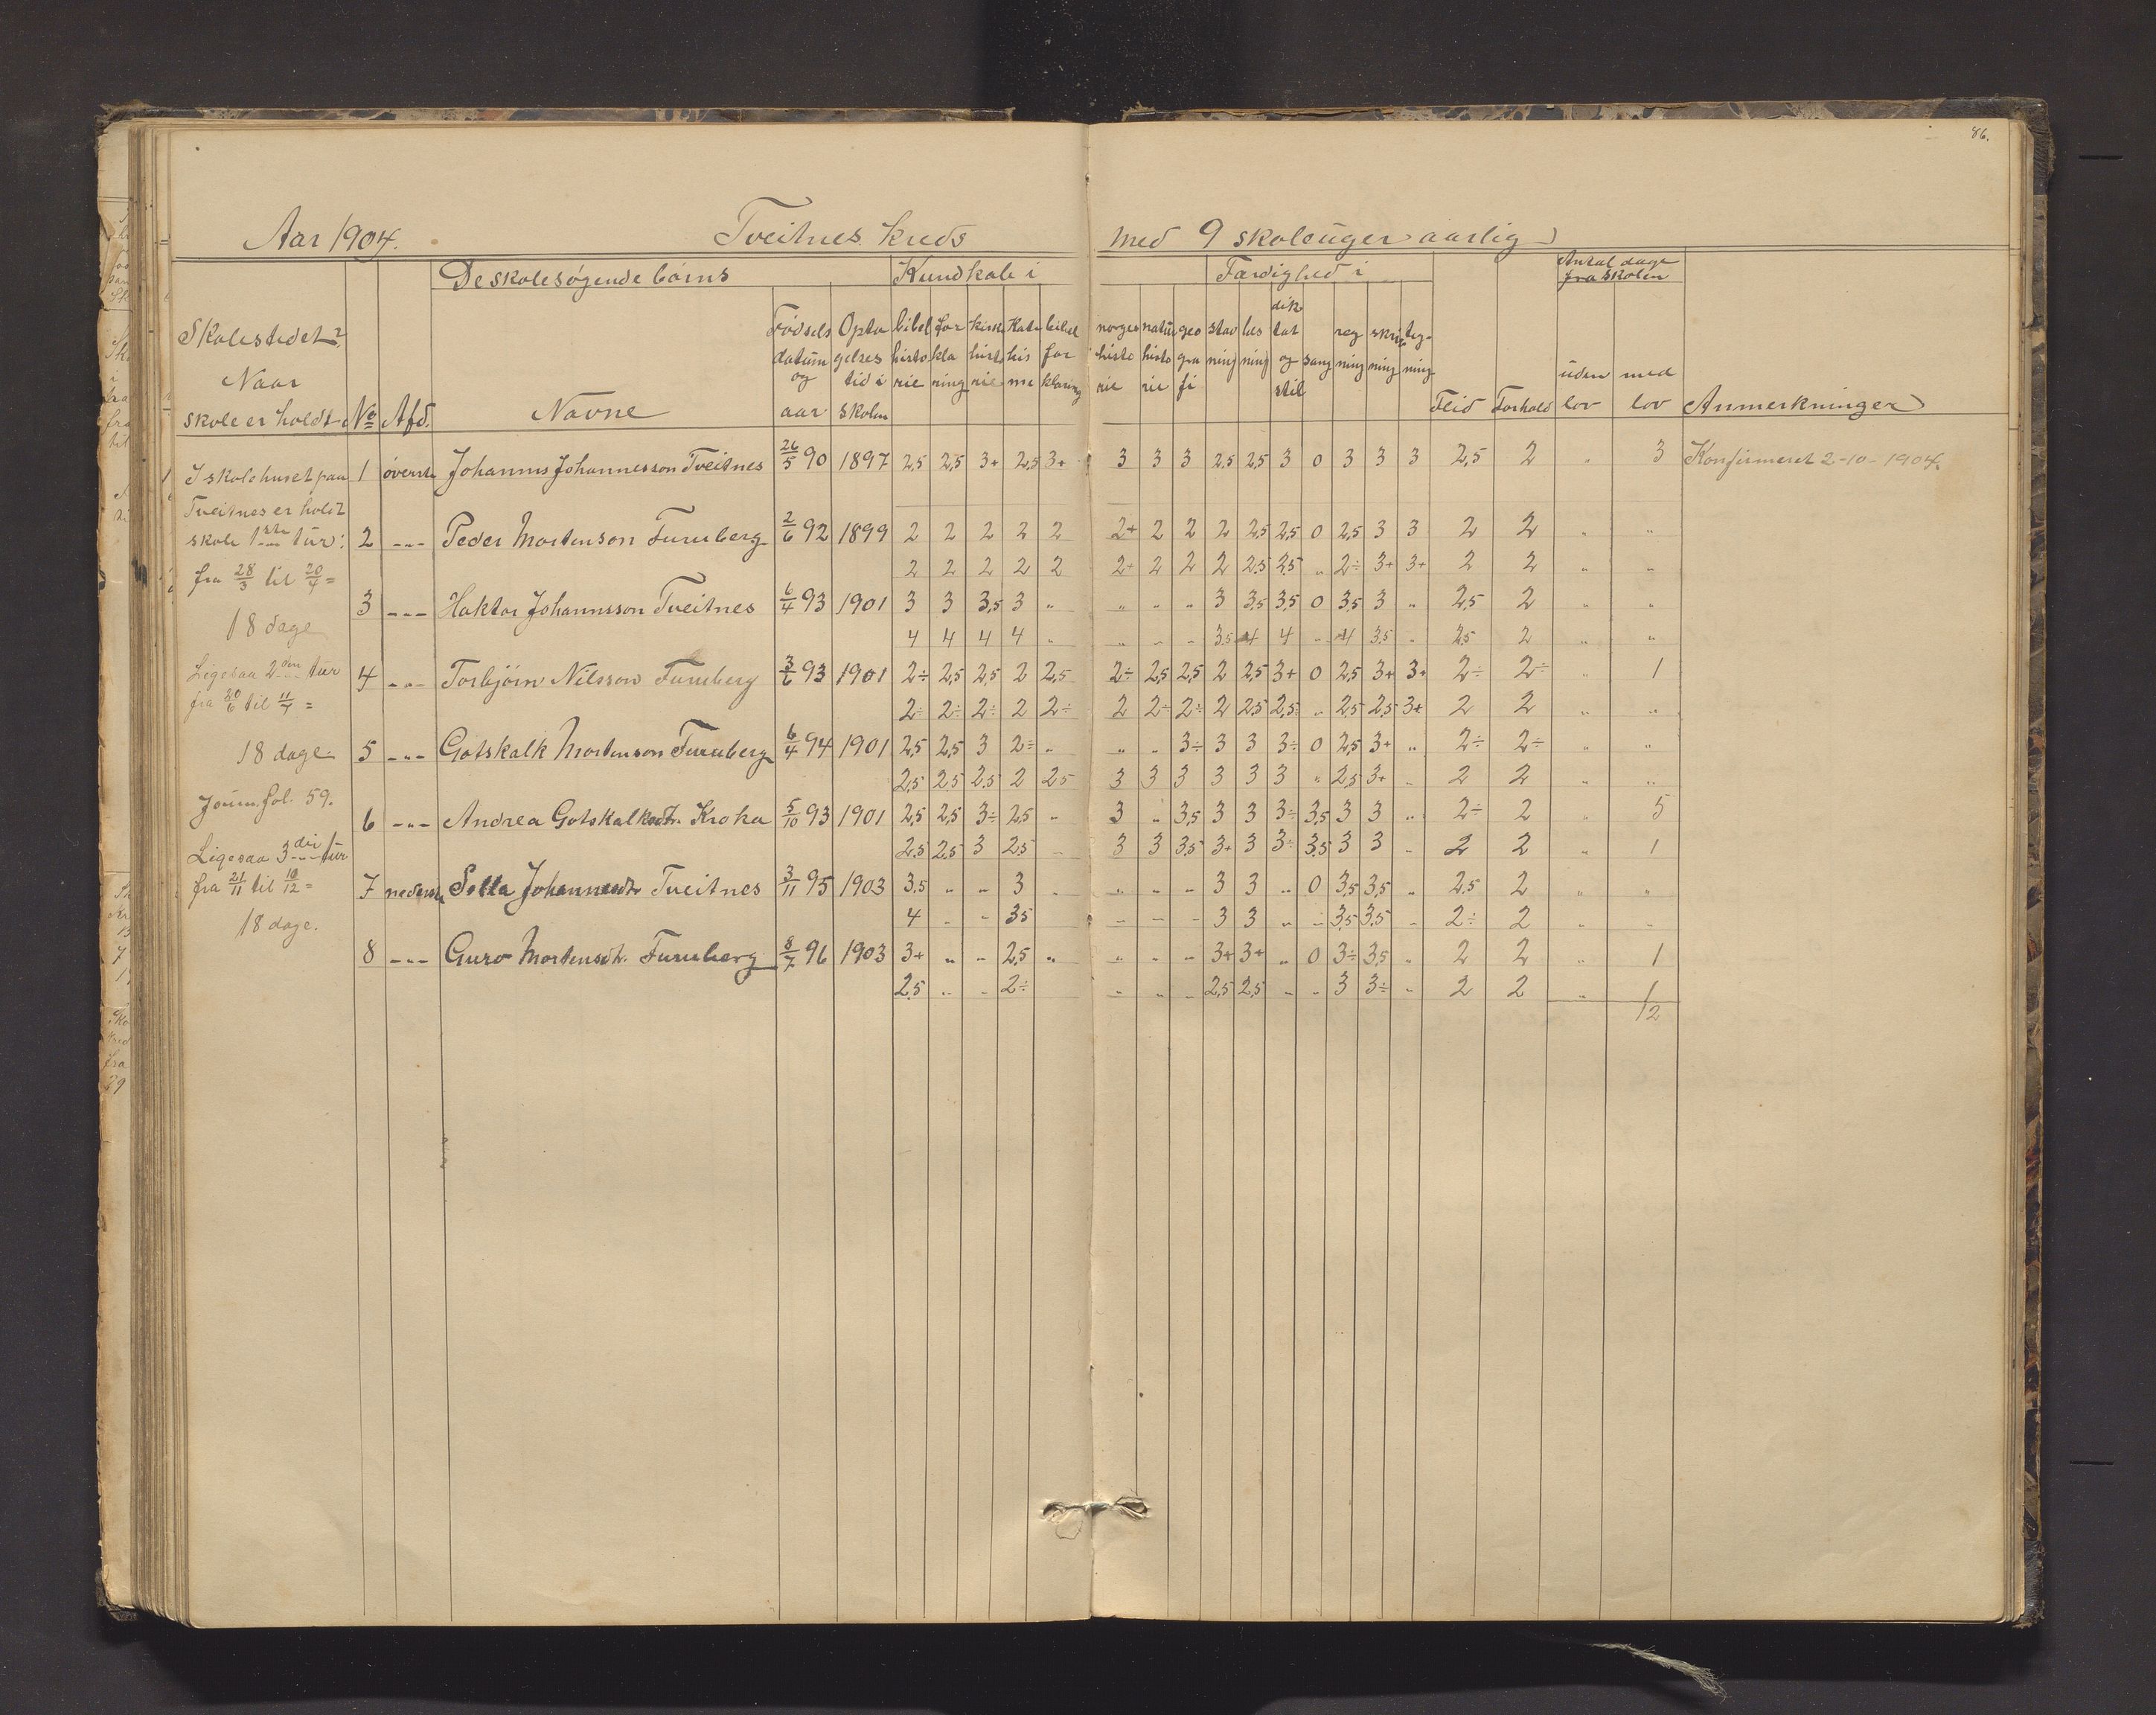 86.
Aar 1904. Tveitnes kreds med 9 skoleuger aarlig
De skolesøgende børns Kundskab i Færdighed i Antal dage fra skolen
Skolestedet?
Naar
skole er holdt
No Afd. Navne
Fødsels datum og aar
Opta gelses tid i skolen
bibel histo rie
for kla ring
kirke histo rie
Kate kis me
bibel for klaring
norges histo rie
natur histo rie
geo gra fi
stav ning
læs ning
dik tat og stil
sang
reg ning
skriv ning
teg- ning
Flid Forhold uden lov med lov Anmerkninger
1 øverste Johannes Johannesson Tveitnes 26/5 90 1897 2,5 2,5 3+ 2,5 3+ 3 3 3 2,5 2,5 3 0 3 3 3 2,5 2 „ 3 Konfirmeret 2-10-1904.
2 -„- Peder Mortenson Furuberg 2/6 92 1899 2 2 2 2 2 2+ 2 2 2 2,5 2,5 0 2,5 3 3 2 2 „ „
2 2 2 2 2 2+ 2 2 2 2,5 2,5 „ 2÷ 3+ 3+ 2 2 „ „
3 -„- Haktor Johannesson Tveitnes 6/4 93 1901 3 3 3,5 3 „ „ „ „ 3 3,5 3,5 0 3,5 3 „ 2,5 2 „ „
4 4 4 4 „ „ „ „ 3,5 4 4 „ 4 3,5 „ 2,5 2 „ „
4 -„- Torbjørn Nilsson Furuberg 3/6 93 1901 2÷ 2,5 2,5 2 2,5 2÷ 2,5 2,5 2 2,5 3+ 0 2,5 3+ 3+ 2÷ 2÷ „ 1
2÷ 2÷ 2÷ 2 2÷ 2 2÷ 2÷ 2 2,5 2,5 „ 2,5 2,5 3+ 2 2 „ „
5 -„- Gotskalk Mortenson Furuberg 6/4 94 1901 2,5 2,5 3 2÷ „ „ „ 3÷ 3 3 3÷ 0 2,5 3+ „ 2÷ 2÷ „ „
2,5 2,5 2,5 2 2,5 3 3 3 3 3 3 „ 2,5 3+ „ 2 2 „ „
6 -„- Andrea Gotskalksdtr. Kroka 5/10 93 1901 2,5 2,5 3÷ 2,5 „ 3 „ 3,5 3 3 3÷ 3,5 3 3 „ 2÷ 2 „ 5
2,5 2,5 3 2,5 „ 3 3 3,5 3+ 3 3÷ 3,5 3 3 „ 2 2 „ 1
7 nederste Johannesdtr Tveitnes 3/11 95 1903 3,5 „ „ 3 „ „ „ „ 3 3 „ 0 3,5 3,5 „ 2,5 2 „ „
4 „ „ 3,5 „ „ „ 3 3 „ „ 3,5 3,5 „ 2÷ 2 „ „
8 -„- Guro Mortensdtr. Furuberg 8/7 96 1903 3+ „ „ 2,5 „ „ „ „ 3+ 3+ „ 0 3÷ 3,5 „ 2 2 „ 1
2,5 „ „ 2÷ „ „ „ 2,5 2,5 „ „ 3 3÷ „ 2 2 „ 1
12
I skolehuset paa
Tveitnes er holdt
skole 1ste tur:
fra 28/3 til 20/4 =
18 dage
Ligesaa 2den tur
fra 20/6 til 11/7 =
18 dage.
Journ. fol. 59.
Ligesaa 3die tur
fra 21/11 til 10/12 =
18 dage.